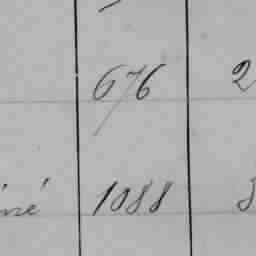 676 2
né 1088